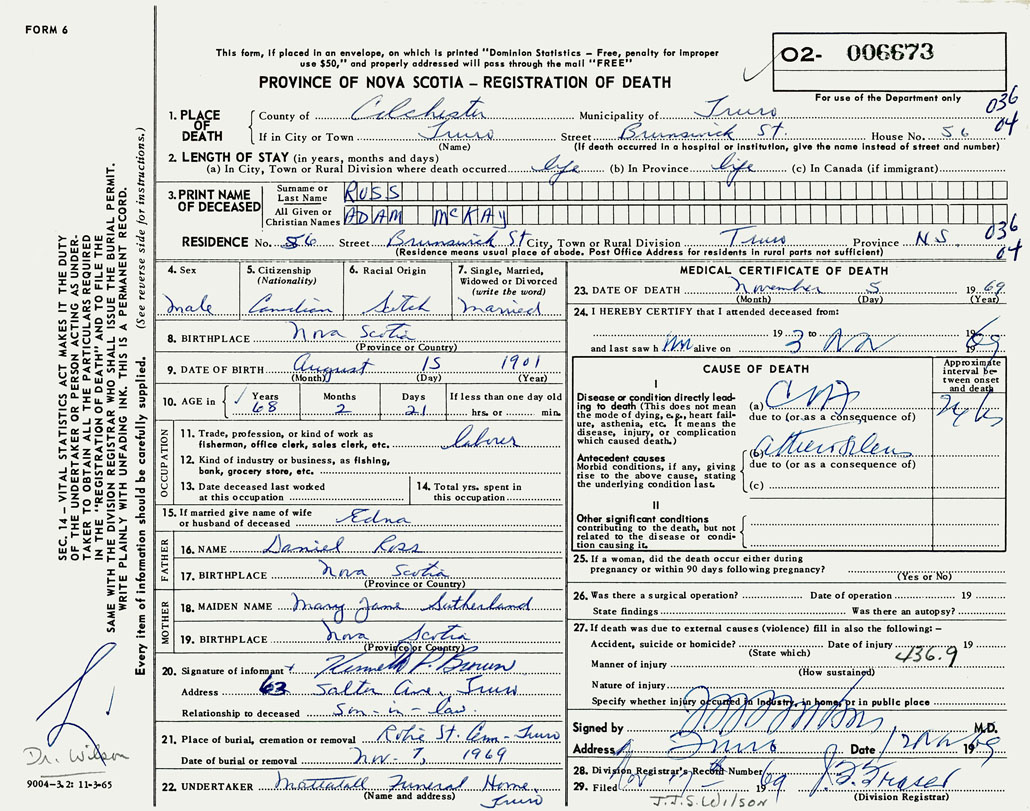 FORM 6
This form, if placed in an envelope, on which is printed "Dominion Statistics – Free, penalty for improper
use $50," and properly addressed will pass through the mail "FREE"
O2- 006673
PROVINCE OF NOVA SCOTIA – REGISTRATION OF DEATH
For use of the Department only
036
04
1. PLACE OF DEATH County of Colchester Municipality of Truro
If in City or Town Truro Street Brunswick St. House No. 56
(Name) (If death occurred in a hospital or institution, give the name instead of street and number)
2. LENGTH OF STAY (in years, months and days)
(a) In City, Town or Rural Division where death occurred life (b) In Province life (c) In Canada (if immigrant)
3. PRINT NAME OF DECEASED Surname or Last Name ROSS
All Given or Christian Names ADAM McKAY
RESIDENCE No. 56 Street Brunswick St City, Town or Rural Division Truro Province N.S. 036 04
(Residence means usual place of abode. Post Office Address for residents in rural parts not sufficient)
4. Sex 5. Citizenship (Nationality) 6. Racial Origin 7. Single, Married, Widowed or Divorced (write the word)
male Canadian Scotch Married
8. BIRTHPLACE Nova Scotia
(Province or Country)
9. DATE OF BIRTH August 15 1901
(Month) (Day) (Year)
10. AGE in Years Months Days If less than one day old
68 2 21 hrs. or min.
OCCUPATION
11. Trade, profession, or kind of work as fishermen, office clerk, sales clerk, etc. laborer
12. Kind of industry or business, as fishing, bank, grocery store, etc.
13. Date deceased last worked at this occupation 14. Total yrs. spent in this occupation
15. If married give name of wife or husband of deceased Edna
FATHER
16. NAME Daniel Ross
17. BIRTHPLACE Nova Scotia
(Province or Country)
MOTHER
18. MAIDEN NAME Mary Jane Sutherland
19. BIRTHPLACE Nova Scotia
(Province or Country)
20. Signature of informant Kenneth P. Brown
Address 63 Salter Ave., Truro
Relationship to deceased Son-in-law
21. Place of burial, cremation or removal Robie St. Cem- Truro
Date of burial or removal Nov. 7, 1969
22. UNDERTAKER Mattatall Funeral Home, Truro
(Name and address)
MEDICAL CERTIFICATE OF DEATH
23. DATE OF DEATH November 5 1969
(Month) (Day) (Year)
24. I HEREBY CERTIFY that I attended deceased from:
19 to 19
and last saw h im alive on 3 Nov 1969
CAUSE OF DEATH
Approximate interval between onset and death
I
Disease or condition directly leading to death (This does not mean the mode of dying, e.g., heart failure, asthenia, etc. It means the disease, injury, or complication which caused death.)
(a) CVA
due to (or as a consequence of)
Antecedent causes
Morbid conditions, if any, giving rise to the above cause, stating the underlying condition last.
(b)
due to (or as a consequence of)
(c)
II
Other significant conditions
contributing to the death, but not related to the disease or condition causing it.
25. If a woman, did the death occur either during
pregnancy or within 90 days following pregnancy?
(Yes or No)
26. Was there a surgical operation? Date of operation 19
State findings Was there an autopsy?
27. If death was due to external causes (violence) fill in also the following: –
Accident, suicide or homicide? Date of injury 19
(State which) 436.9
Manner of injury
(How sustained)
Nature of injury
Specify whether injury occurred in industry, in home, or in public place
Signed by M.D.
Address Truro Date Nov 1969
28. Division Registrar's Record Number
29. Filed Nov 7th 1969 J. F. Fraser
(Division Registrar)
J.J.S. WILSON
SEC. 14 – VITAL STATISTICS ACT MAKES IT THE DUTY
OF THE UNDERTAKER OR PERSON ACTING AS UNDER-
TAKER TO OBTAIN ALL THE PARTICULARS REQUIRED
IN THE "REGISTRATION OF DEATH" AND TO FILE THE
SAME WITH THE DIVISION REGISTRAR WHO SHALL ISSUE THE BURIAL PERMIT.
WRITE PLAINLY WITH UNFADING INK. THIS IS A PERMANENT RECORD.
Every item of information should be carefully supplied. (See reverse side for instructions.)
Dr. Wilson
9004-3.2: 11-3-65